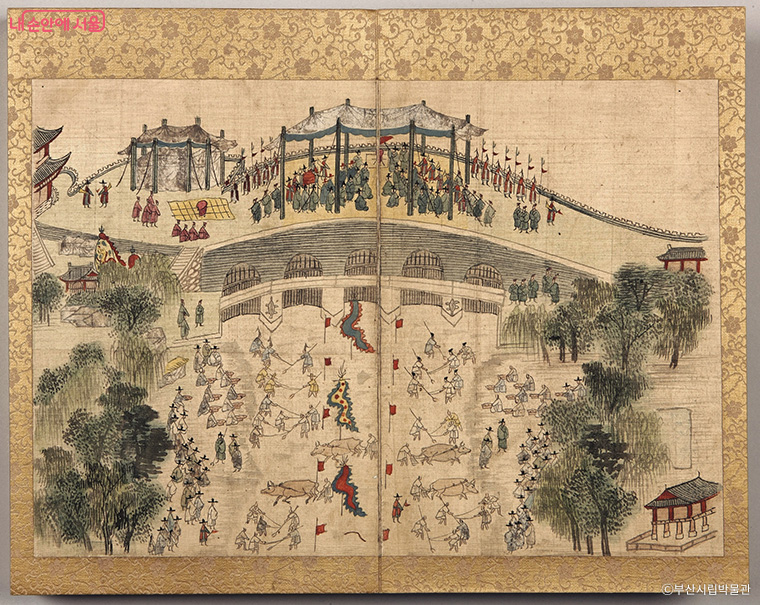 내 손안에 서울
©부산시립박물관